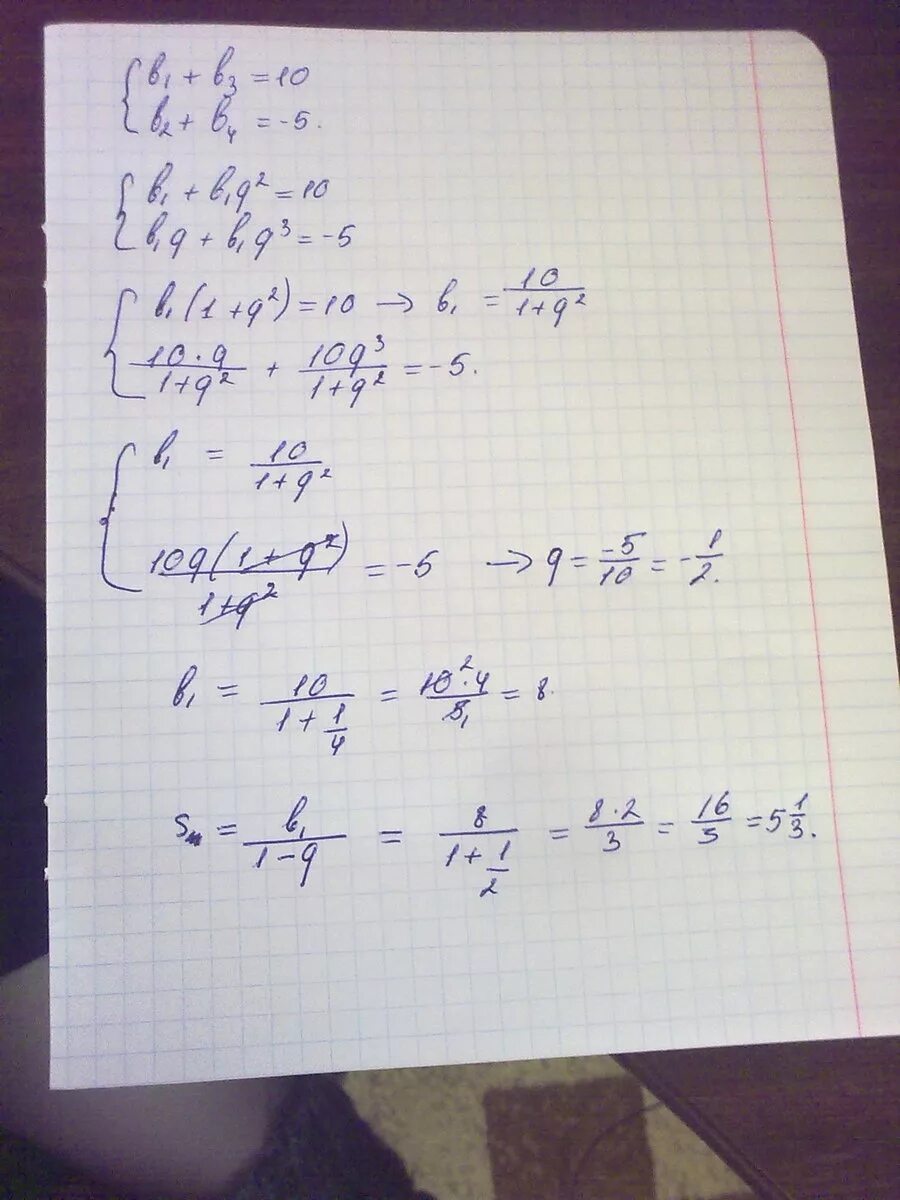 { b₁ + b₃ = 10
b₂ + b₄ = -5.
{ b₁ + b₁q² = 10
b₁q + b₁q³ = -5
{ b₁(1+q²) = 10 → b₁ = 10/(1+q²)
(10·q)/(1+q²) + 10q³/(1+q²) = -5.
{ b₁ = 10/(1+q²)
10q(1+q²)/(1+q²) = -5 → q = -5/10 = -1/2.
b₁ = 10/(1+1/4) = (10²·4)/5₁ = 8.
S = b₁/(1-q) = 8/(1+1/2) = (8·2)/3 = 16/3 = 5 1/3.